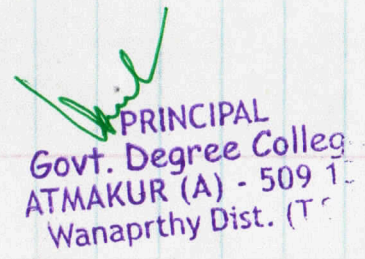 PRINCIPAL
Govt. Degree Colleg
ATMAKUR (A) - 509 1
Wanaprthy Dist. (T